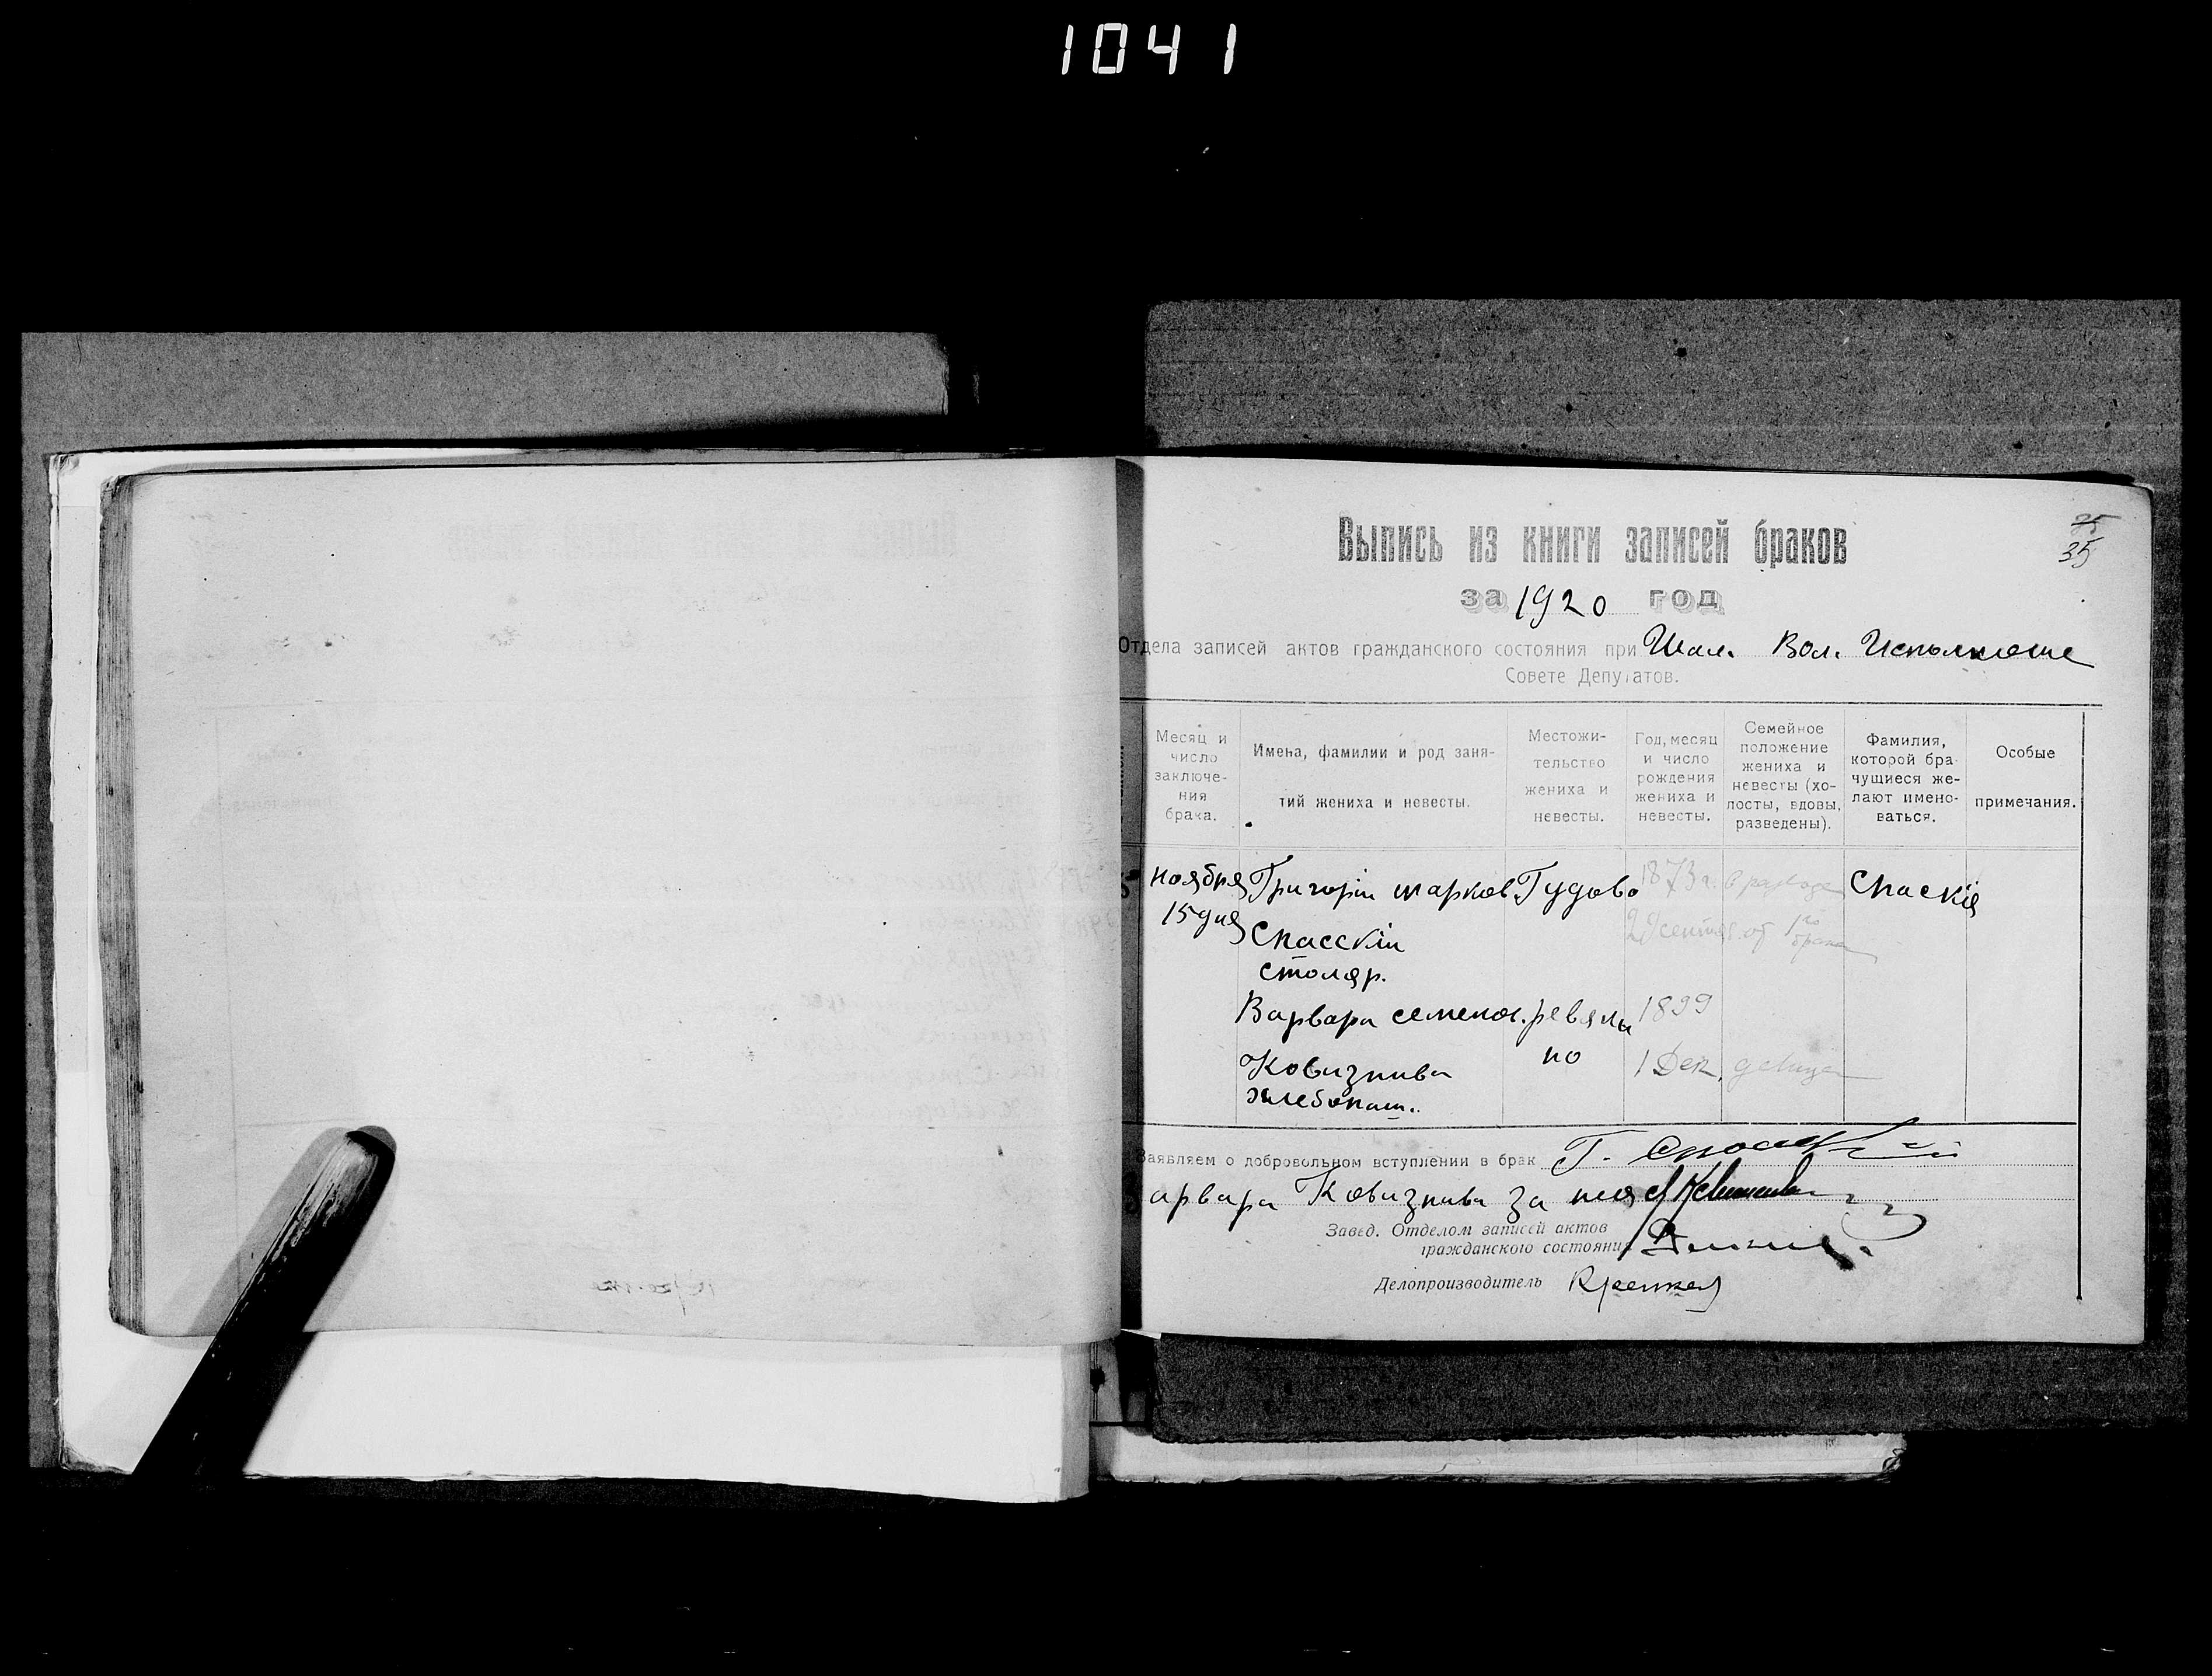 1041
25
35
Выпись из книги записей браков
за 1920 год
Отдела записей актов гражданского состояния при Шал. Вол. Исполкоме
Совете Депутатов.
Месяц и число заключения брака.
Имена, фамилии и род занятий жениха и невесты.
Местожительство жениха и невесты.
Год, месяц и число рождения жениха и невесты.
Семейное положение жениха и невесты (холосты, вдовы, разведены).
Фамилия, которой брачущиеся желают именоваться.
Особые примечания.
ноября Григорій марков. Гудово 1873 г. в разводе Спаскій
15 дня 29 сентяб. от 1го брака
Спасскій
столяр.
Варвара семенов. ревяки 1899
но
Ковизнива 1 Дек. девица
хлебопаш.
Заявляем о добровольном вступлении в брак Г. Спасский
арвара Ковизнива за нея
Завед. Отделом записей актов
гражданского состояния
Делопроизводитель